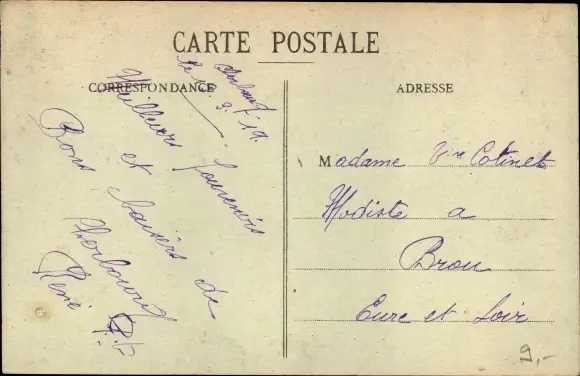 CARTE POSTALE
CORRESPONDANCE
ADRESSE
Cherbourg
le 3.7.19.
Meilleurs souvenirs
et baisers de
Bons
Cherbourg
René
Madame Vve Cotinet
Modiste a
Brou
Eure et Loir
9,-